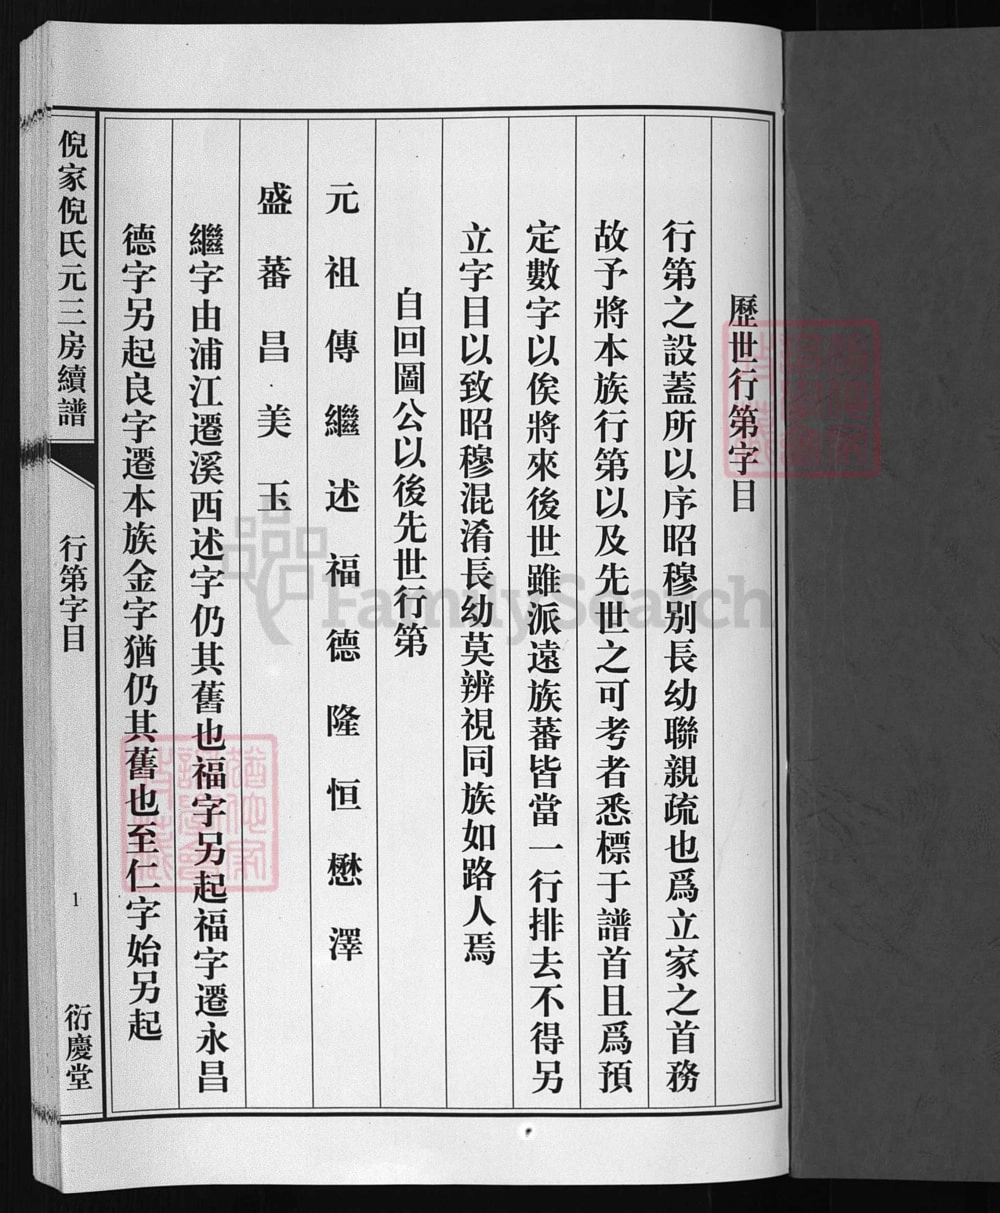 歷世行第字目
行第之設蓋所以序昭穆別長幼聯親疏也爲立家之首務
故予將本族行第以及先世之可考者悉標于譜首且爲預
定數字以俟將來後世雖派遠族蕃皆當一行排去不得另
立字目以致昭穆混淆長幼莫辨視同族如路人焉
自回圖公以後先世行第
元祖傳繼述福德隆恒懋澤
盛蕃昌美玉
繼字由浦江遷溪西述字仍其舊也福字另起福字遷永昌
德字另起良字遷本族金字猶仍其舊也至仁字始另起
倪家倪氏元三房續譜
行第字目
1
衍慶堂
FamilySearch